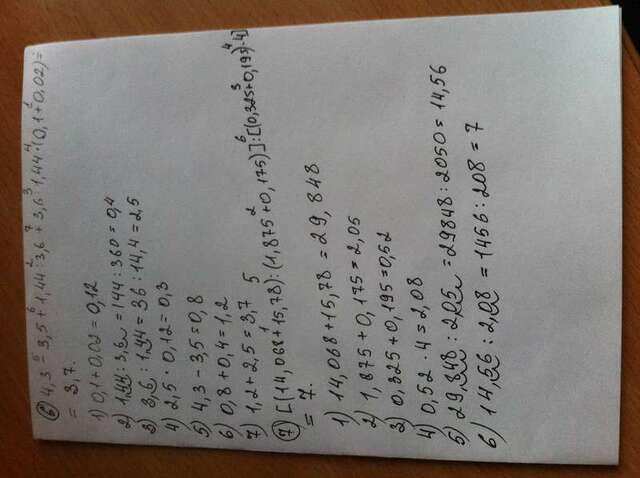 6) 4,3 - 3,5 + 1,44 : 3,6 + 3,6 : 1,44 · (0,1 + 0,02) =
= 3,7.
1) 0,1 + 0,02 = 0,12
2) 1,44 : 3,6 = 144 : 360 = 0,4
3) 3,6 : 1,44 = 36 : 14,4 = 2,5
4) 2,5 · 0,12 = 0,3
5) 4,3 - 3,5 = 0,8
6) 0,8 + 0,4 = 1,2
7) 1,2 + 2,5 = 3,7
7) [(14,068 + 15,78) : (1,875 + 0,175)] : [(0,325 + 0,195) · 4]
= 7.
1) 14,068 + 15,78 = 29,848
2) 1,875 + 0,175 = 2,05
3) 0,325 + 0,195 = 0,52
4) 0,52 · 4 = 2,08
5) 29,848 : 2,05 = 29848 : 2050 = 14,56
6) 14,56 : 2,08 = 1456 : 208 = 7